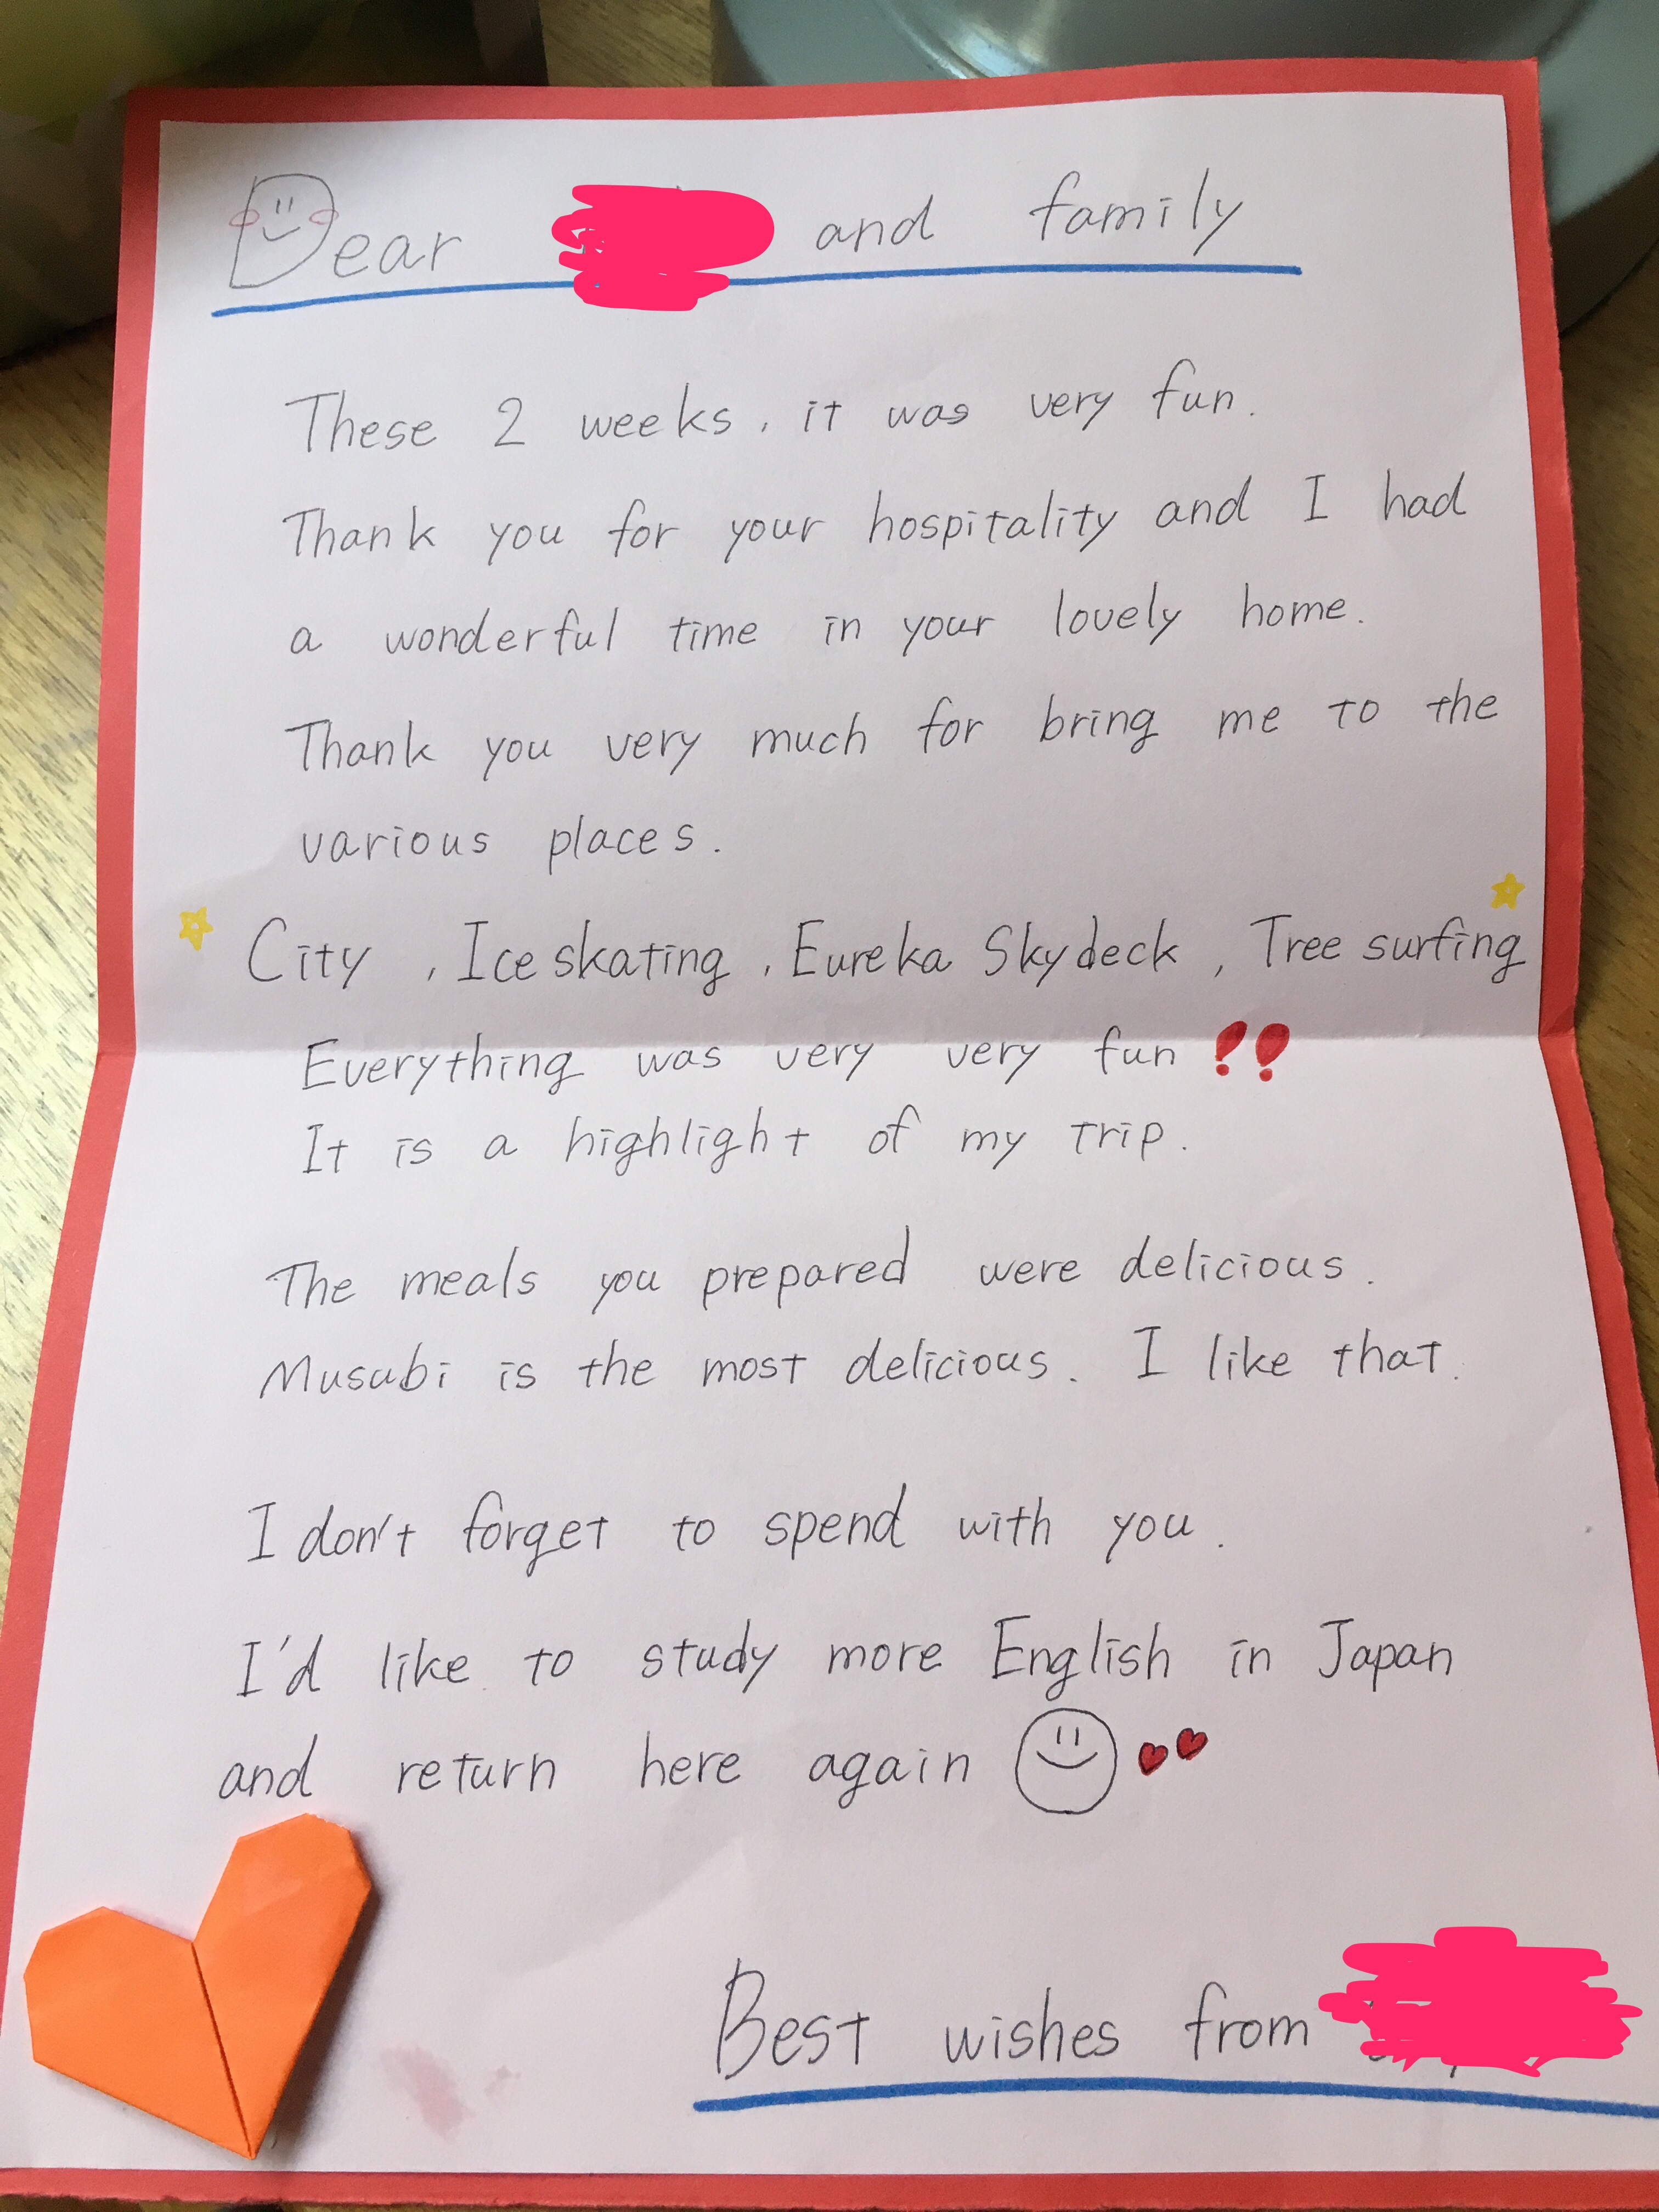 Dear and family
These 2 weeks, it was very fun.
Thank you for your hospitality and I had
a wonderful time in your lovely home.
Thank you very much for bring me to the
various places.
City , Ice skating , Eureka Skydeck , Tree surfing
Everything was very very fun !!
It is a highlight of my trip.
The meals you prepared were delicious.
Musubi is the most delicious. I like that.
I don't forget to spend with you.
I'd like to study more English in Japan
and return here again
Best wishes from